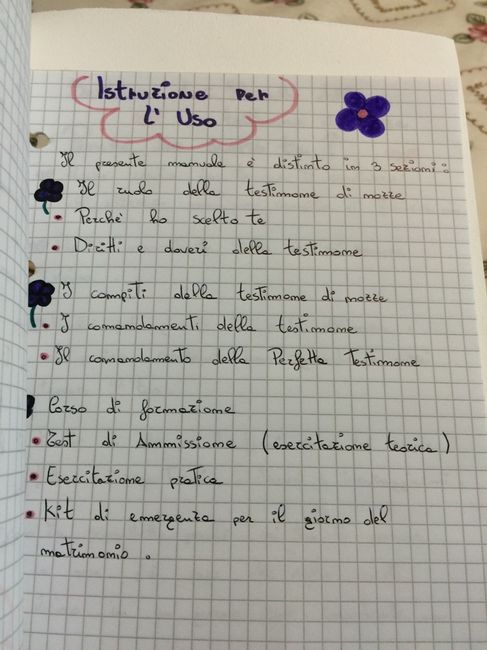 Istruzione per
L' Uso
Il presente manuale è distinto in 3 sezioni:
Il ruolo della testimone di nozze
• Perché ho scelto te
• Diritti e doveri della testimone
I compiti della testimone di nozze
• I comandamenti della testimone
• Il comandamento della Perfetta Testimone
Corso di formazione
• Test di Ammissione (esercitazione teorica)
• Esercitazione pratica
• Kit di emergenza per il giorno del
matrimonio.